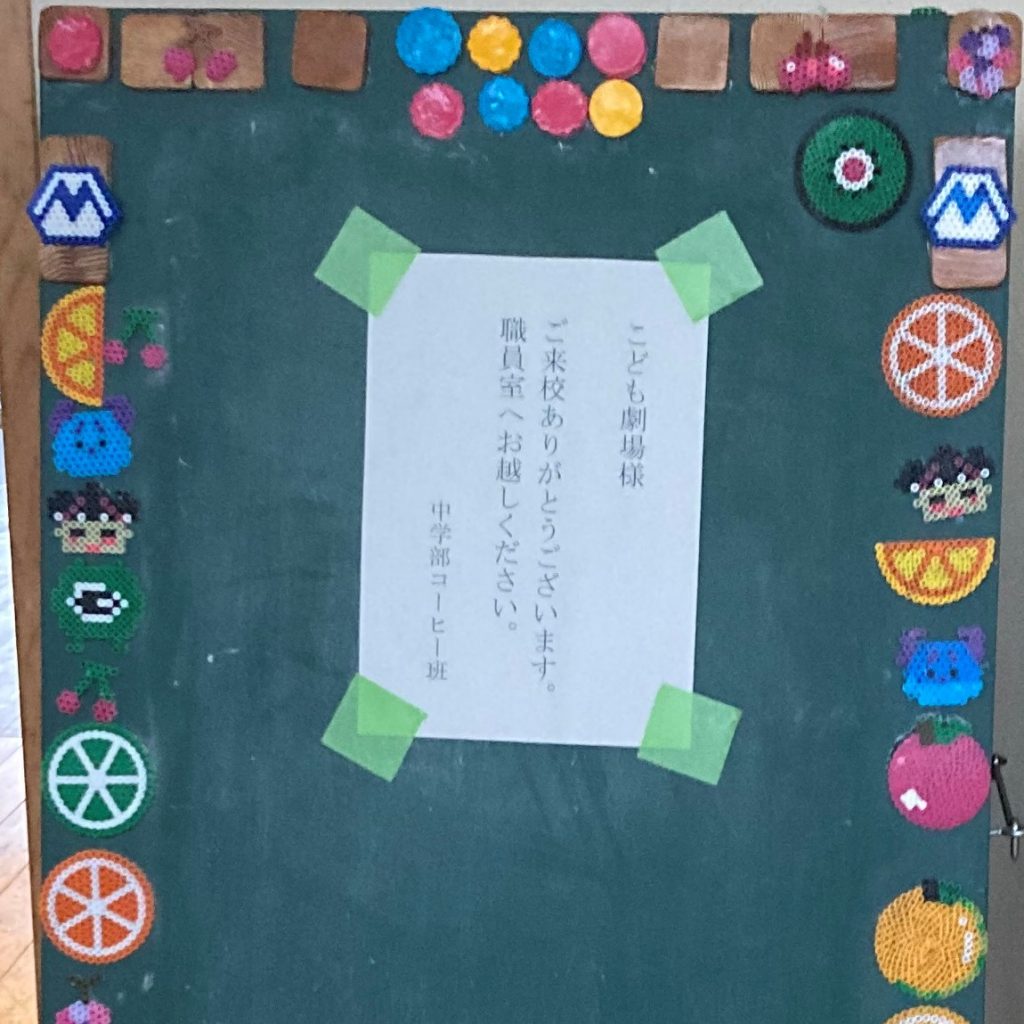 こども劇場様
ご来校ありがとうございます。
職員室へお越しください。
中学部コーヒー班
M
M